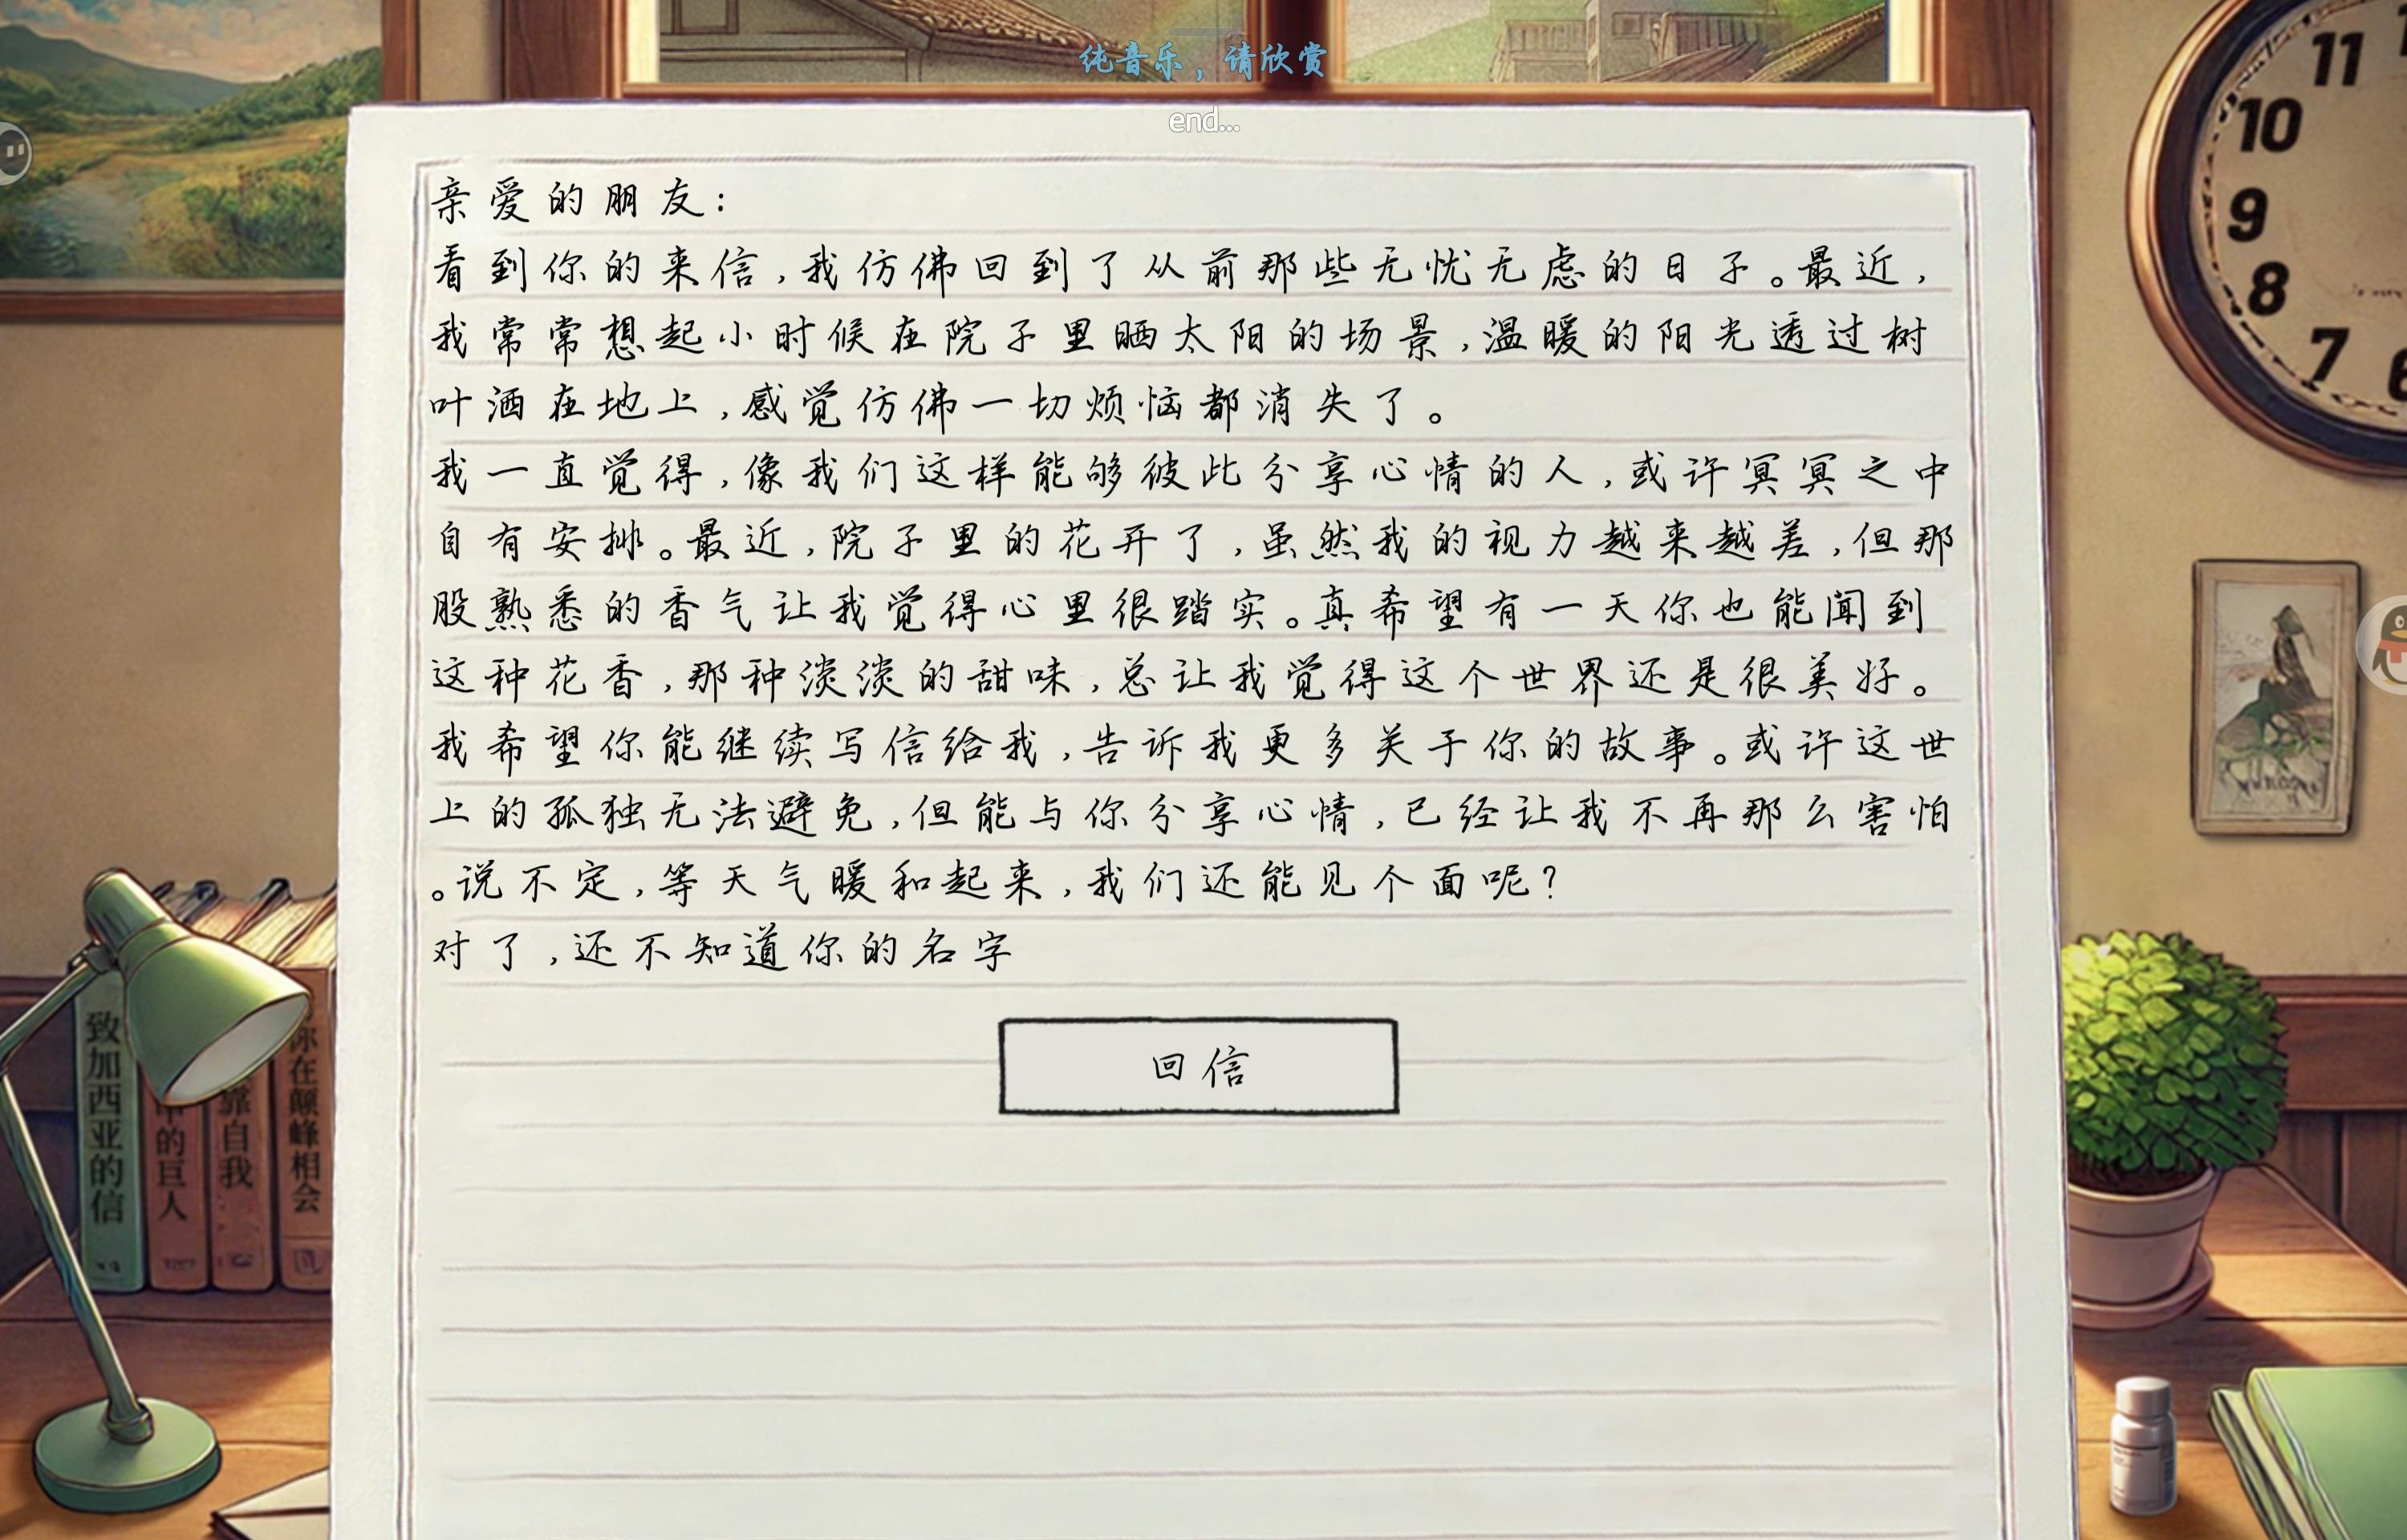 纯音乐，请欣赏
end...
亲爱的朋友：
看到你的来信，我仿佛回到了从前那些无忧无虑的日子。最近，
我常常想起小时候在院子里晒太阳的场景，温暖的阳光透过树
叶洒在地上，感觉仿佛一切烦恼都消失了。
我一直觉得，像我们这样能够彼此分享心情的人，或许冥冥之中
自有安排。最近，院子里的花开了，虽然我的视力越来越差，但那
股熟悉的香气让我觉得心里很踏实。真希望有一天你也能闻到
这种花香，那种淡淡的甜味，总让我觉得这个世界还是很美好。
我希望你能继续写信给我，告诉我更多关于你的故事。或许这世
上的孤独无法避免，但能与你分享心情，已经让我不再那么害怕
。说不定，等天气暖和起来，我们还能见个面呢？
对了，还不知道你的名字
回信
致加西亚的信
中的巨人
靠自我
你在颠峰相会
11
10
9
8
7
6